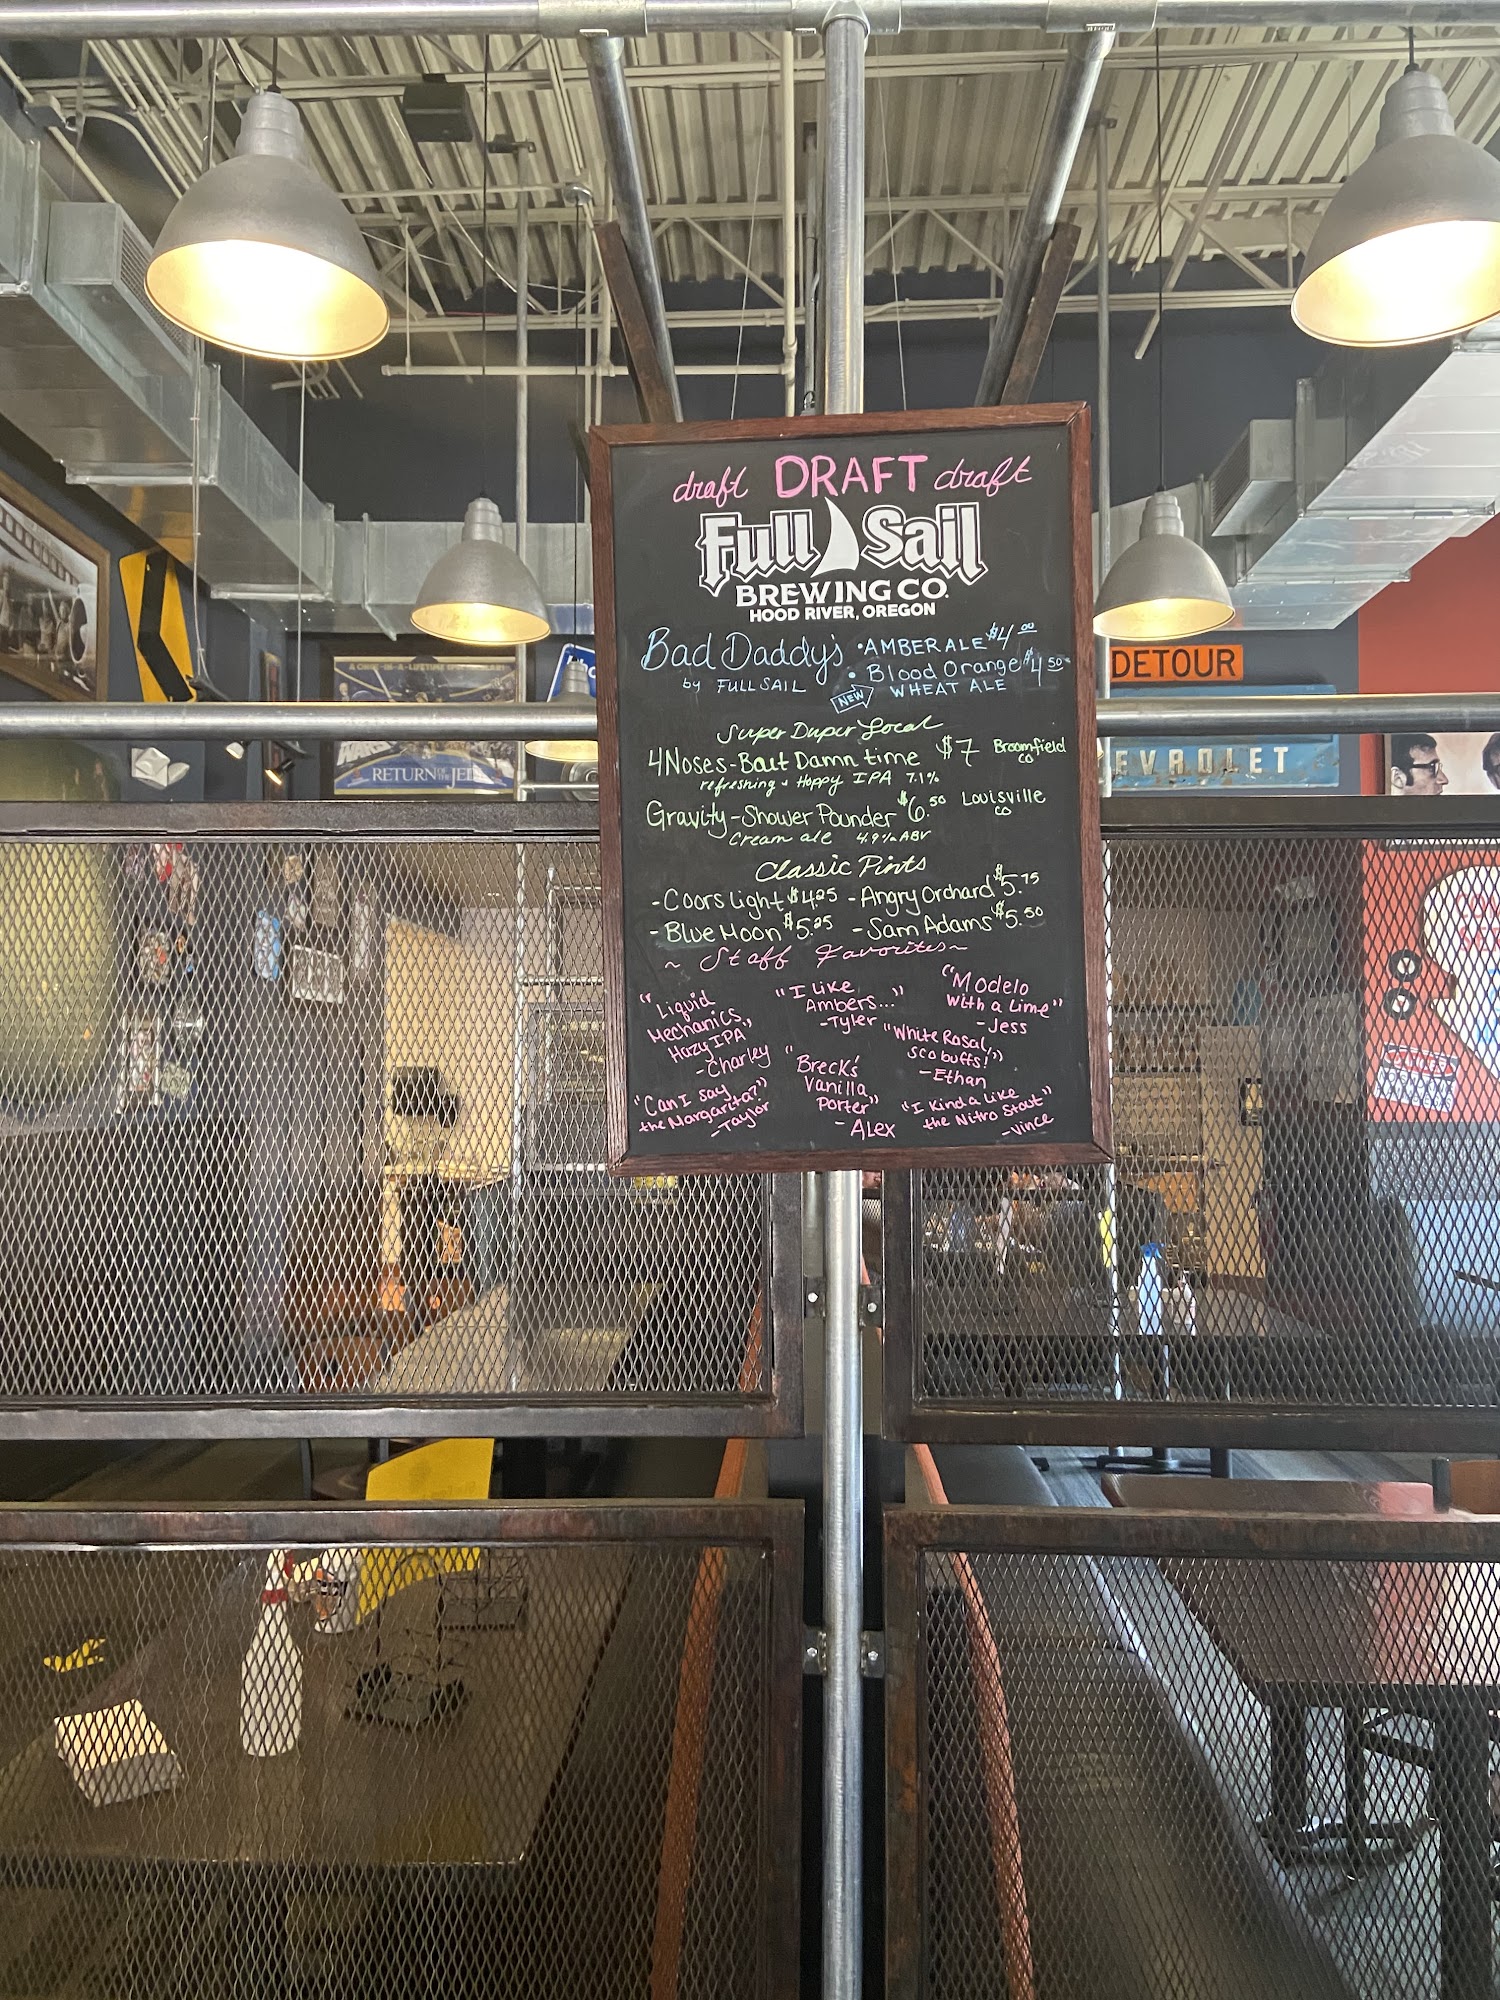 draft DRAFT draft
Full Sail
BREWING CO.
HOOD RIVER, OREGON
Bad Daddy's • AMBER ALE $4.00
by FULL SAIL • Blood Orange $4.50
NEW WHEAT ALE
Super Duper Local
4Noses - Bout Damn time $7 Broomfield CO
refreshing + Hoppy IPA 7.1%
Gravity - Shower Pounder $6.50 Louisville CO
Cream ale 4.9% ABV
Classic Pints
- Coors Light $4.25 - Angry Orchard $5.75
- Blue Moon $5.25 - Sam Adams $5.50
~ Staff Favorites ~
"Liquid
Mechanics
Hazy IPA"
- Charley
"I Like
Ambers..."
- Tyler
"Modelo
with a Lime"
- Jess
"White Rascal,
sco buffs!"
- Ethan
"Can I say
the Margarita?"
- Taylor
"Breck's
Vanilla
Porter"
- Alex
"I Kinda Like
the Nitro Stout"
- Vince
DETOUR
EVROLET
RETURN OF THE JEDI